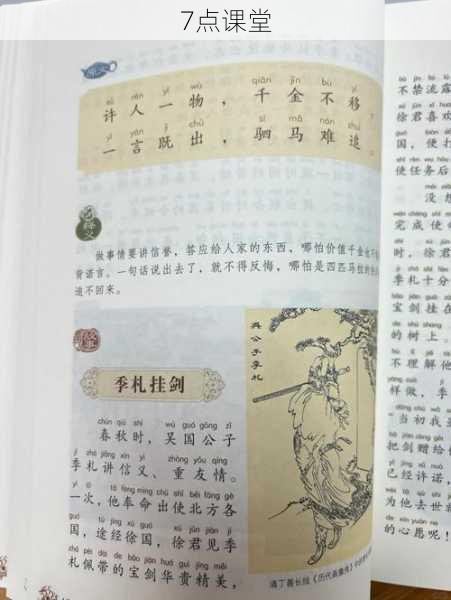 7点课堂
原文
xǔ rén yí wù qiān jīn bù yí
许人一物，千金不移。
yì yán jì chū sì mǎ nán zhuī
一言既出，驷马难追。
释义
做事情要讲信誉，答应给人家的东西，哪怕价值千金也不
背诺言。一句话说出去了，就不得反悔，哪怕是四匹马拉的
追不回来。
故事
季札挂剑
chūn qiū shí wú guó gōng zǐ
春秋时，吴国公子
jì zhá jiǎng xìn yì zhòng yǒu qíng
季札讲信义、重友情。
yí cì tā fèng mìng chū shǐ běi fāng gè
一次，他奉命出使北方各
guó tú jīng xú guó xú jūn jiàn jì
国，途经徐国，徐君见季
zhá pèi dài de bǎo jiàn huá guì jīng měi
札佩带的宝剑华贵精美，
吴公子季札
清丁善长绘《历代画像传》
不禁流露
徐君喜欢
国，便打
使任务后
没想
完成使命
时，徐君
季札十分
宝剑挂在
的树上。
不理解他
样做，季
“当初我
把剑赠给
已经许诺，
为他去世
的心愿呢！